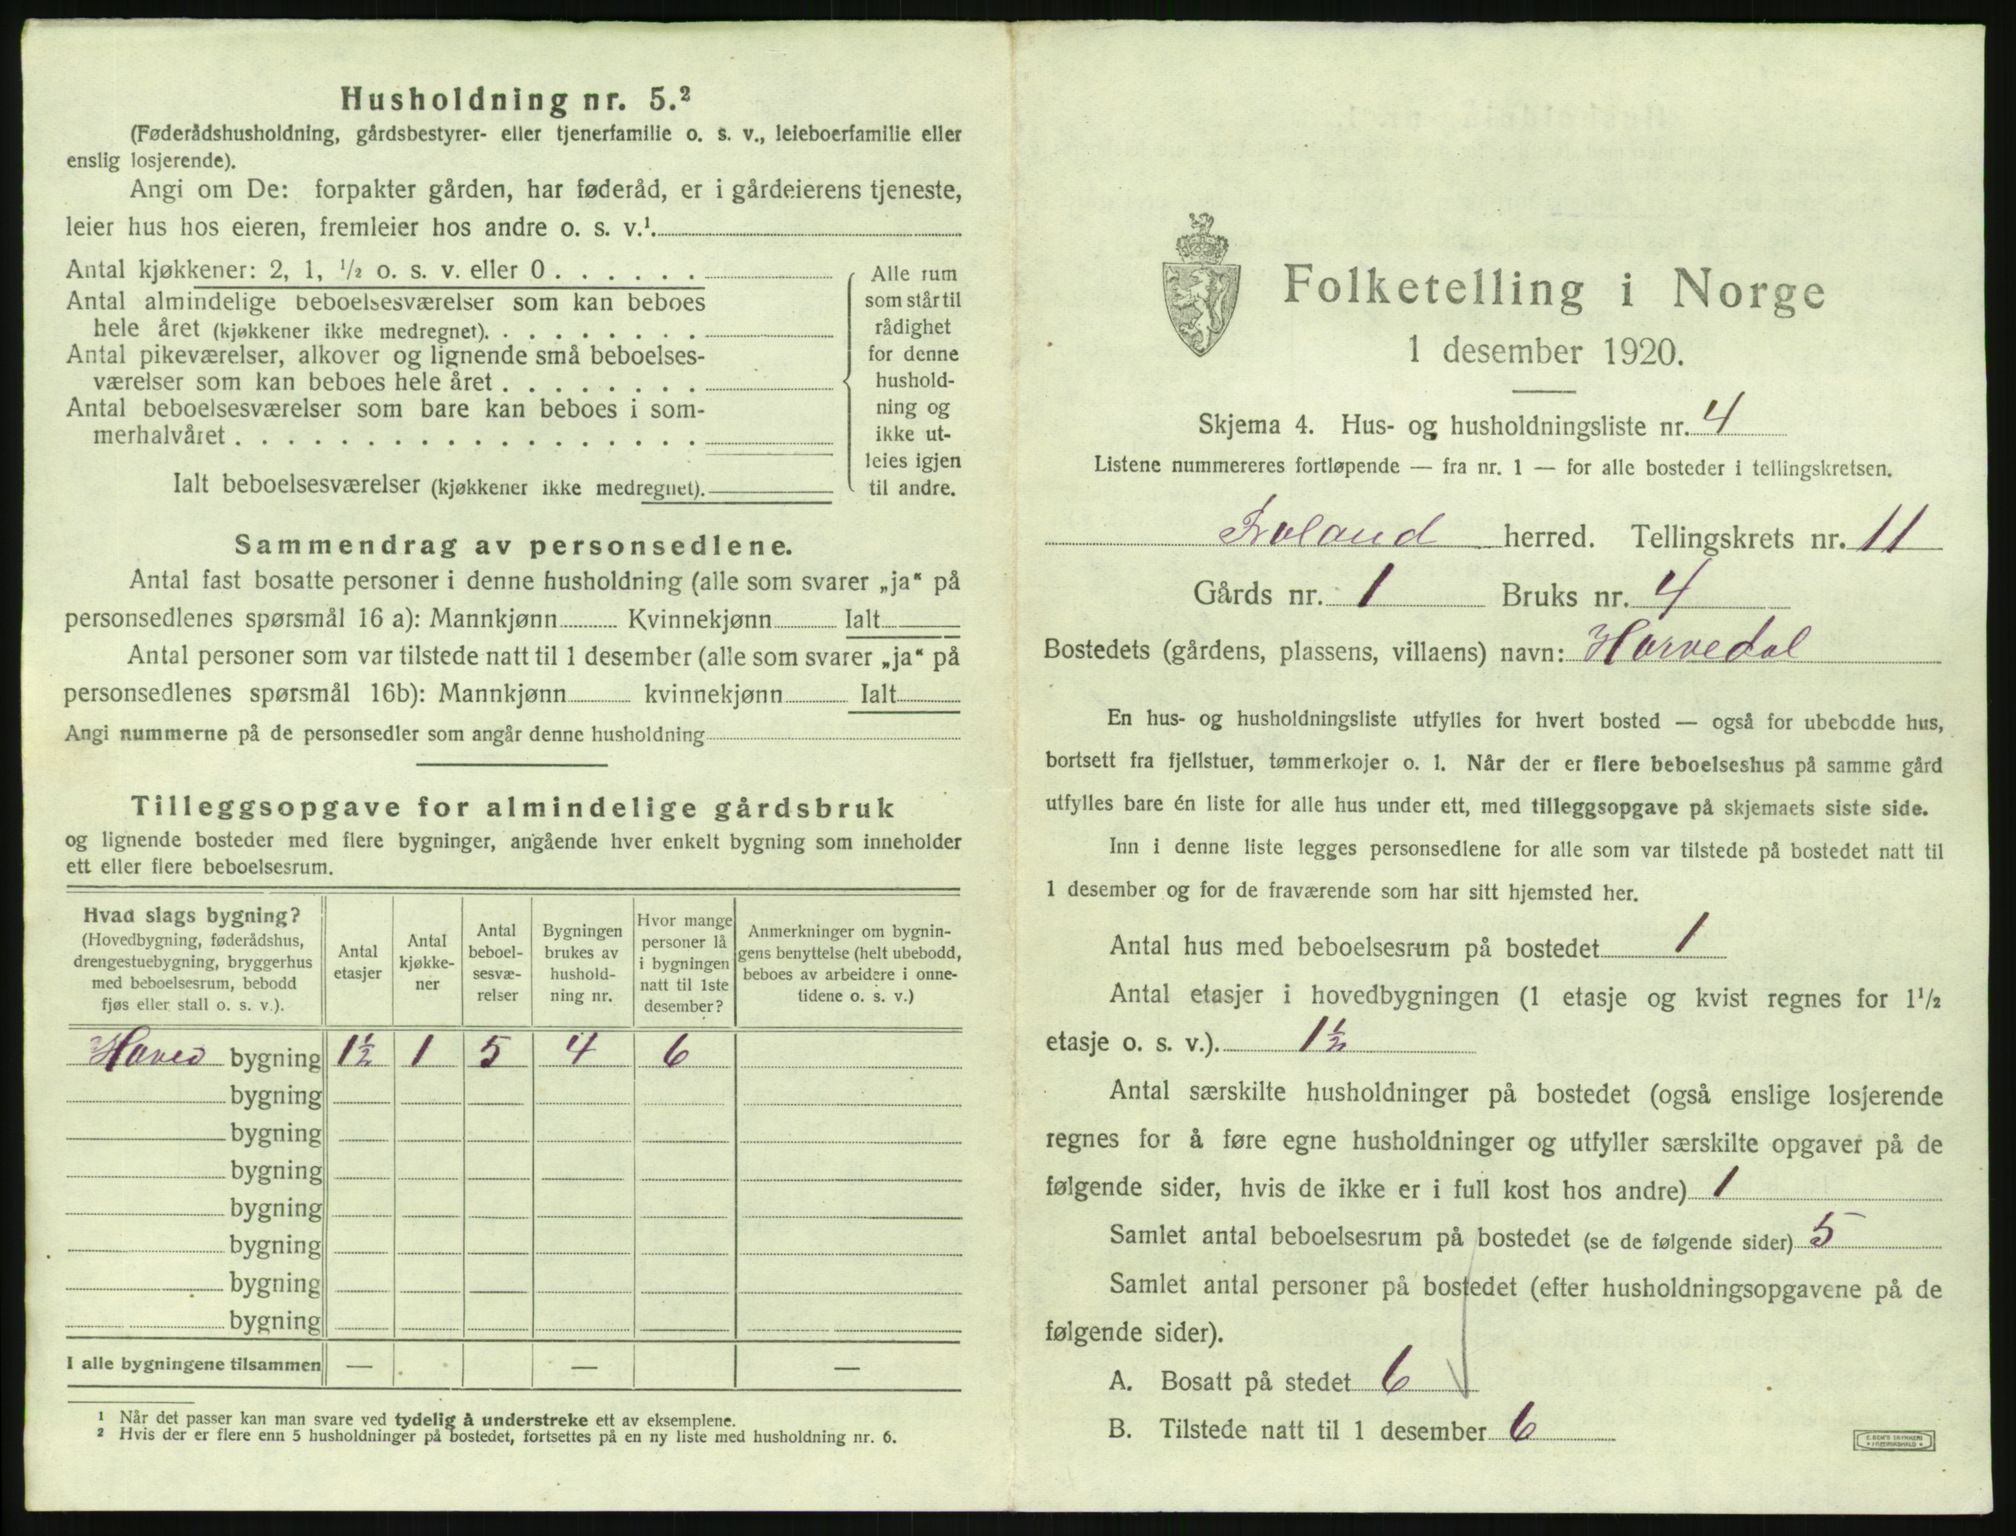 Husholdning nr. 5.²
(Føderådshusholdning, gårdsbestyrer- eller tjenerfamilie o. s. v., leieboerfamilie eller
enslig losjerende).
Angi om De: forpakter gården, har føderåd, er i gårdeierens tjeneste,
leier hus hos eieren, fremleier hos andre o. s. v.¹.
Antal kjøkkener: 2, 1, ½ o. s. v. eller 0 . . . . . .
Antal almindelige beboelsesværelser som kan beboes
hele året (kjøkkener ikke medregnet). . . . . . . . .
Antal pikeværelser, alkover og lignende små beboelses-
værelser som kan beboes hele året . . . . . . . .
Antal beboelsesværelser som bare kan beboes i som-
merhalvåret . . . . . . . . . . . . . . . . . .
Ialt beboelsesværelser (kjøkkener ikke medregnet).
Alle rum
som står til
rådighet
for denne
hushold-
ning og
ikke ut-
leies igjen
til andre.
Sammendrag av personsedlene.
Antal fast bosatte personer i denne husholdning (alle som svarer „ja“ på
personsedlenes spørsmål 16 a): Mannkjønn Kvinnekjønn Ialt
Antal personer som var tilstede natt til 1 desember (alle som svarer „ja“ på
personsedlenes spørsmål 16b): Mannkjønn kvinnekjønn Ialt
Angi nummerne på de personsedler som angår denne husholdning
Tilleggsopgave for almindelige gårdsbruk
og lignende bosteder med flere bygninger, angående hver enkelt bygning som inneholder
ett eller flere beboelsesrum.
Hvad slags bygning?
(Hovedbygning, føderådshus,
drengestuebygning, bryggerhus
med beboelsesrum, bebodd
fjøs eller stall o. s. v.).
Antal
etasjer
Antal
kjøkke-
ner
Antal
beboel-
sesvæ-
relser
Bygningen
brukes av
hushold-
ning nr.
Hvor mange
personer lå
i bygningen
natt til 1ste
desember?
Anmerkninger om bygnin-
gens benyttelse (helt ubebodd,
beboes av arbeidere i onne-
tidene o. s. v.)
Hoved bygning 1½ 1 5 4 6
bygning
bygning
bygning
bygning
bygning
bygning
bygning
I alle bygningene tilsammen — — —
¹ Når det passer kan man svare ved tydelig å understreke ett av eksemplene.
² Hvis der er flere enn 5 husholdninger på bostedet, fortsettes på en ny liste med husholdning nr. 6.
Folketelling i Norge
1 desember 1920.
Skjema 4. Hus- og husholdningsliste nr. 4
Listene nummereres fortløpende — fra nr. 1 — for alle bosteder i tellingskretsen.
Froland herred. Tellingskrets nr. 11
Gårds nr. 1 Bruks nr. 4
Bostedets (gårdens, plassens, villaens) navn: Hurvedal
En hus- og husholdningsliste utfylles for hvert bosted — også for ubebodde hus,
bortsett fra fjellstuer, tømmerkojer o. l. Når der er flere beboelseshus på samme gård
utfylles bare én liste for alle hus under ett, med tilleggsopgave på skjemaets siste side.
Inn i denne liste legges personsedlene for alle som var tilstede på bostedet natt til
1 desember og for de fraværende som har sitt hjemsted her.
Antal hus med beboelsesrum på bostedet 1
Antal etasjer i hovedbygningen (1 etasje og kvist regnes for 1½
etasje o. s. v.). 1½
Antal særskilte husholdninger på bostedet (også enslige losjerende
regnes for å føre egne husholdninger og utfyller særskilte opgaver på de
følgende sider, hvis de ikke er i full kost hos andre) 1
Samlet antal beboelsesrum på bostedet (se de følgende sider) 5
Samlet antal personer på bostedet (efter husholdningsopgavene på de
følgende sider).
A. Bosatt på stedet 6
B. Tilstede natt til 1 desember 6